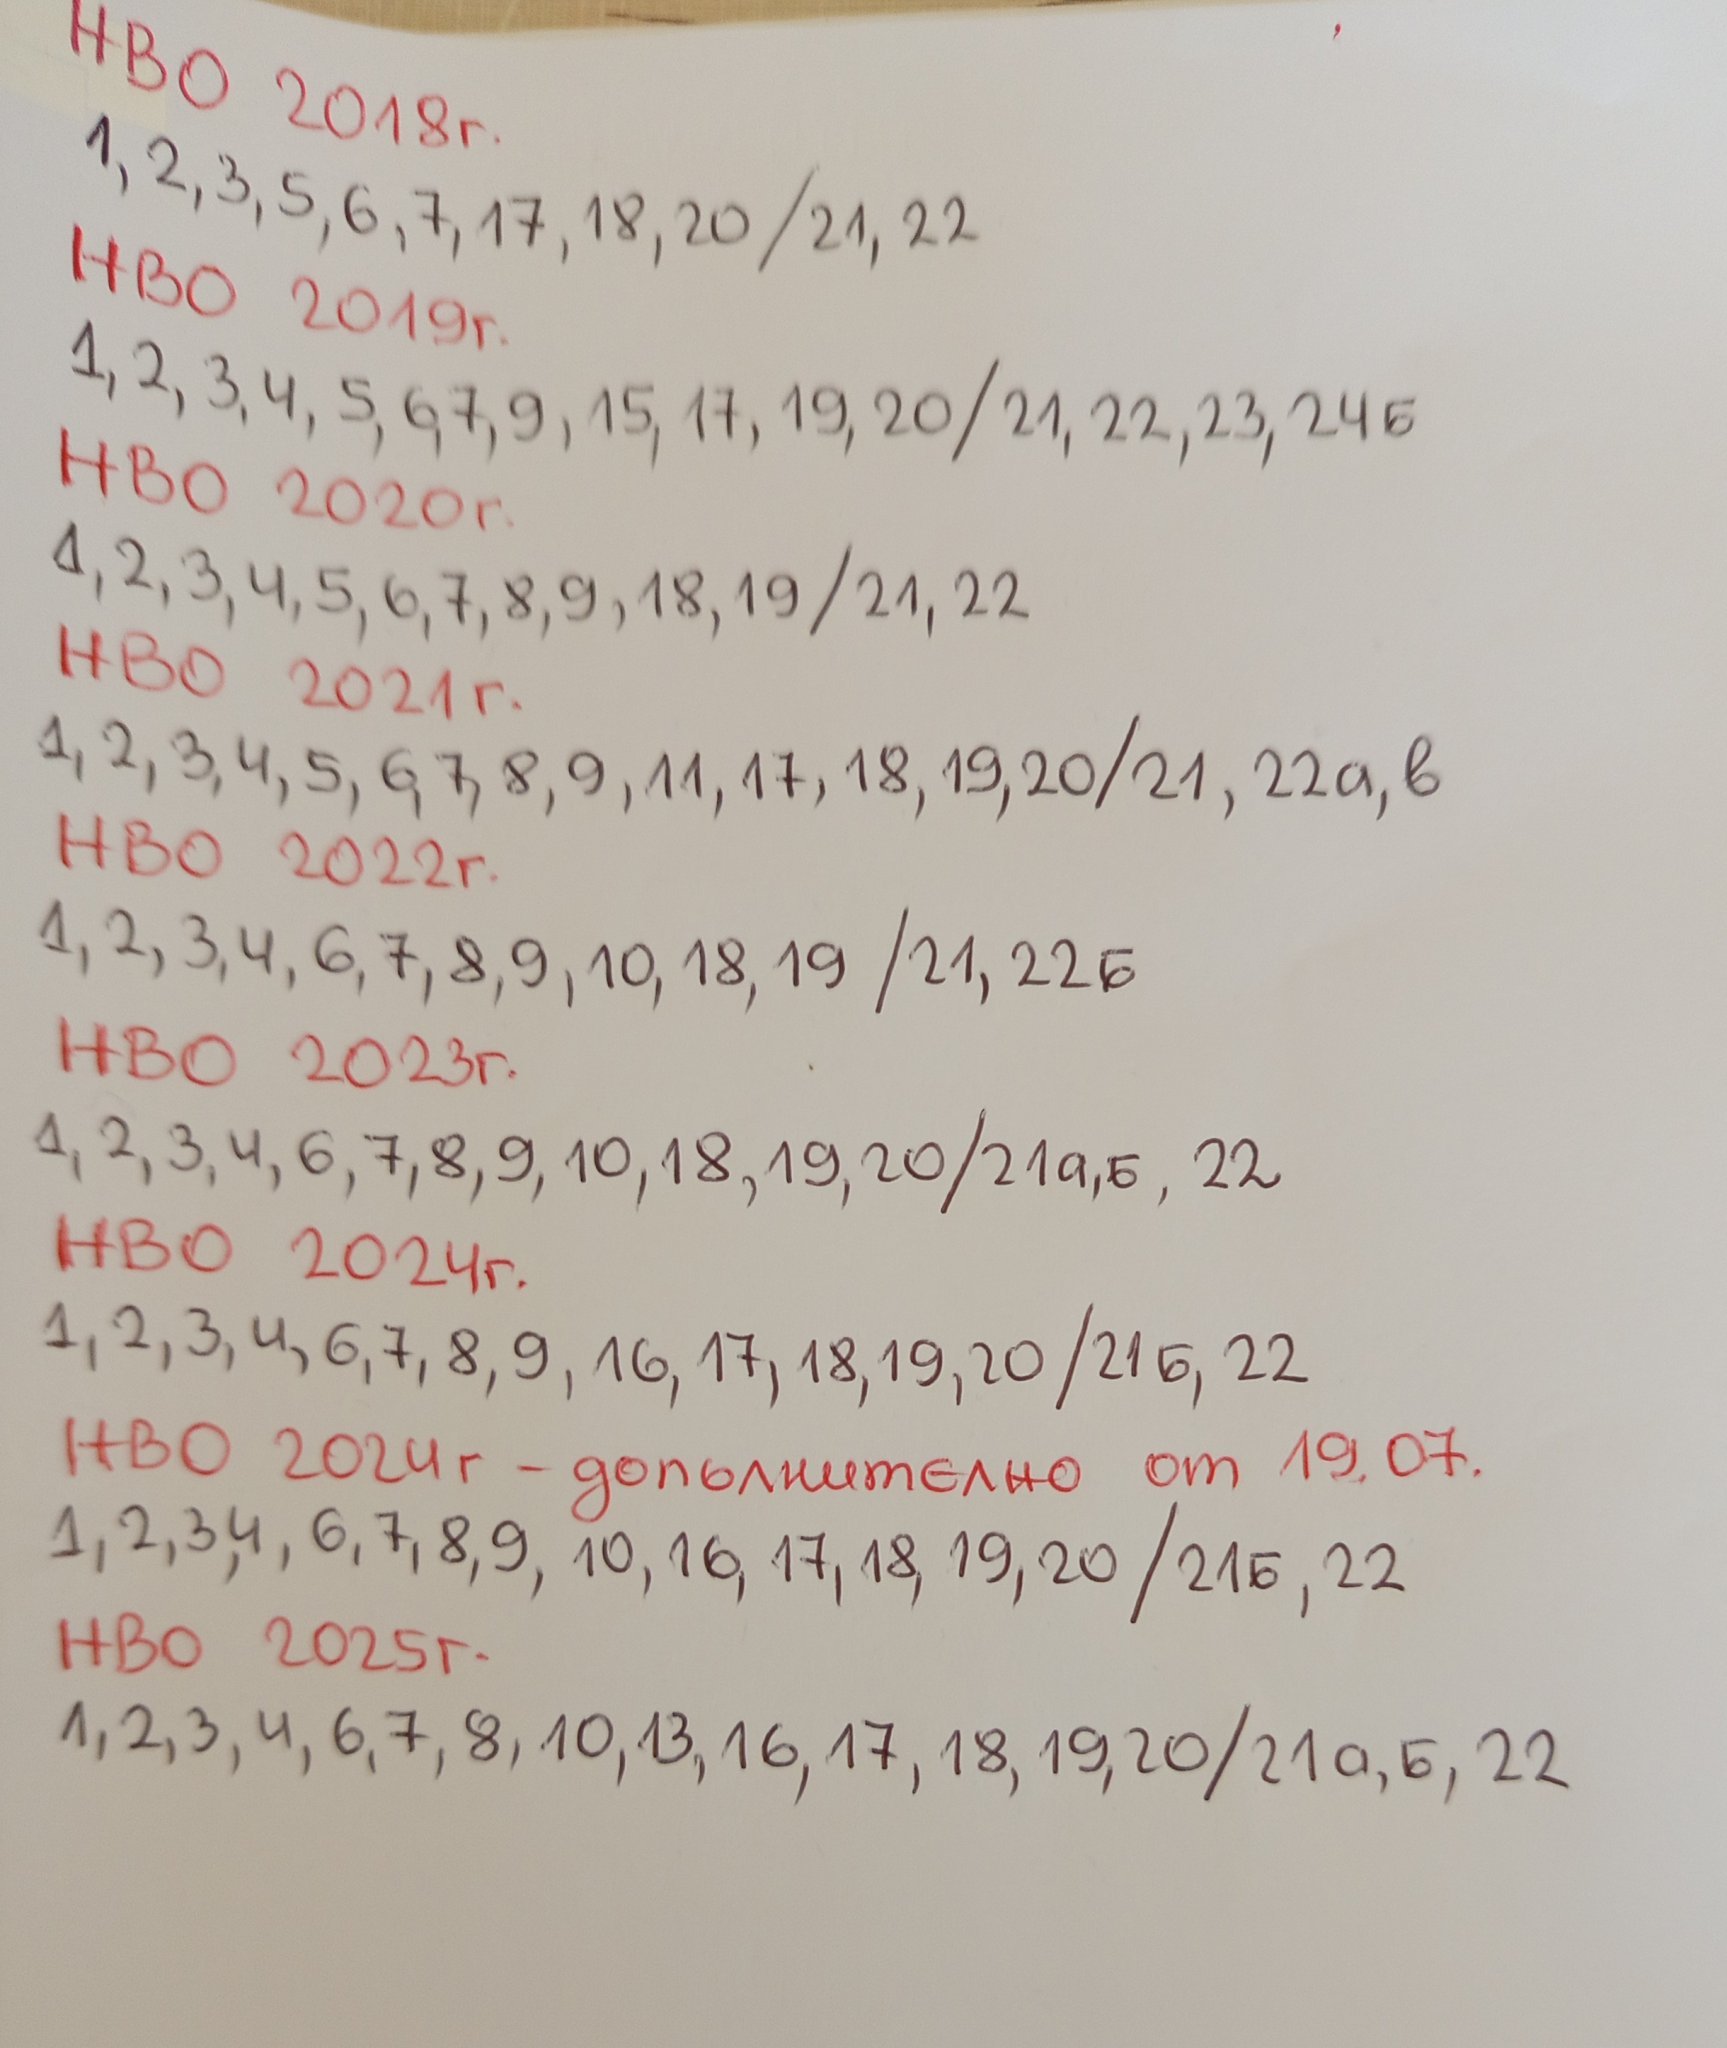 НВО 2018г.
1, 2, 3, 5, 6, 7, 17, 18, 20 / 21, 22
НВО 2019г.
1, 2, 3, 4, 5, 6, 7, 9, 15, 17, 19, 20 / 21, 22, 23, 24б
НВО 2020г.
1, 2, 3, 4, 5, 6, 7, 8, 9, 18, 19 / 21, 22
НВО 2021г.
1, 2, 3, 4, 5, 6, 7, 8, 9, 11, 17, 18, 19, 20 / 21, 22а, в
НВО 2022г.
1, 2, 3, 4, 6, 7, 8, 9, 10, 18, 19 / 21, 22б
НВО 2023г.
1, 2, 3, 4, 6, 7, 8, 9, 10, 18, 19, 20 / 21а, б, 22
НВО 2024г.
1, 2, 3, 4, 6, 7, 8, 9, 16, 17, 18, 19, 20 / 21б, 22
НВО 2024г - допълнително от 19.07.
1, 2, 3, 4, 6, 7, 8, 9, 10, 16, 17, 18, 19, 20 / 21б, 22
НВО 2025г.
1, 2, 3, 4, 6, 7, 8, 10, 13, 16, 17, 18, 19, 20 / 21а, б, 22